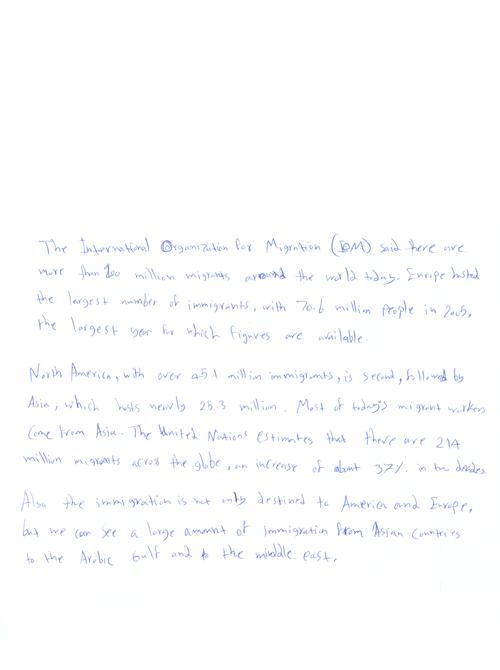 The International Organization for Migration (IOM) said there are
more than 200 million migrants around the world today. Europe hosted
the largest number of immigrants, with 70.6 million people in 2005,
the largest year for which figures are available.
North America, with over 45.1 million immigrants, is second, followed by
Asia, which hosts nearly 25.3 million. Most of today's migrant workers
come from Asia. The United Nations estimates that there are 214
million migrants across the globe, an increase of about 37% in two decades.
Also the immigration is not only destined to America and Europe,
but we can see a large amount of immigration from Asian countries
to the Arabic Gulf and to the middle east.